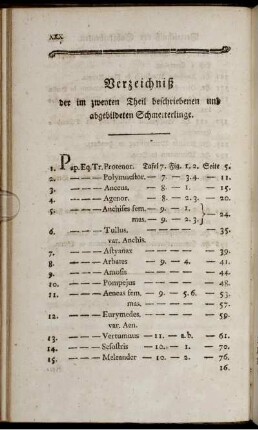 XIX.
Verzeichniß
der im zweyten Theil beschriebenen und
abgebildeten Schmetterlinge.
1. Pap. Eq. Tr. Protenor. Tafel 7. Fig. 1. 2. Seite 5.
2. — — — Polymnestor. — 7. — 3.4. — 11.
3. — — — Anceus. — 8. — 1. — 15.
4. — — — Agenor. — 8. — 2.3. — 20.
5. — — — Anchises fem. — 9. — 1. —
mas. — 9. — 2.3. — } 24.
6. — — — Tullus. — — — — 35.
var. Anchis.
7. — — — Astyanax — — — — 39.
8. — — — Arbates — 9. — 4. — 41.
9. — — — Amosis — — — — 44.
10. — — — Pompejus — — — — 48.
11. — — — Aeneas fem. — 9. — 5.6. — 53.
mas. — — — — 57.
12. — — — Eurymedes. — — — — 59.
var. Aen.
13. — — — Vertumnus — 11. — a.b. — 61.
14. — — — Sesostris — 10. — 1. — 70.
15. — — — Meleander — 10. — 2. — 76.
16.